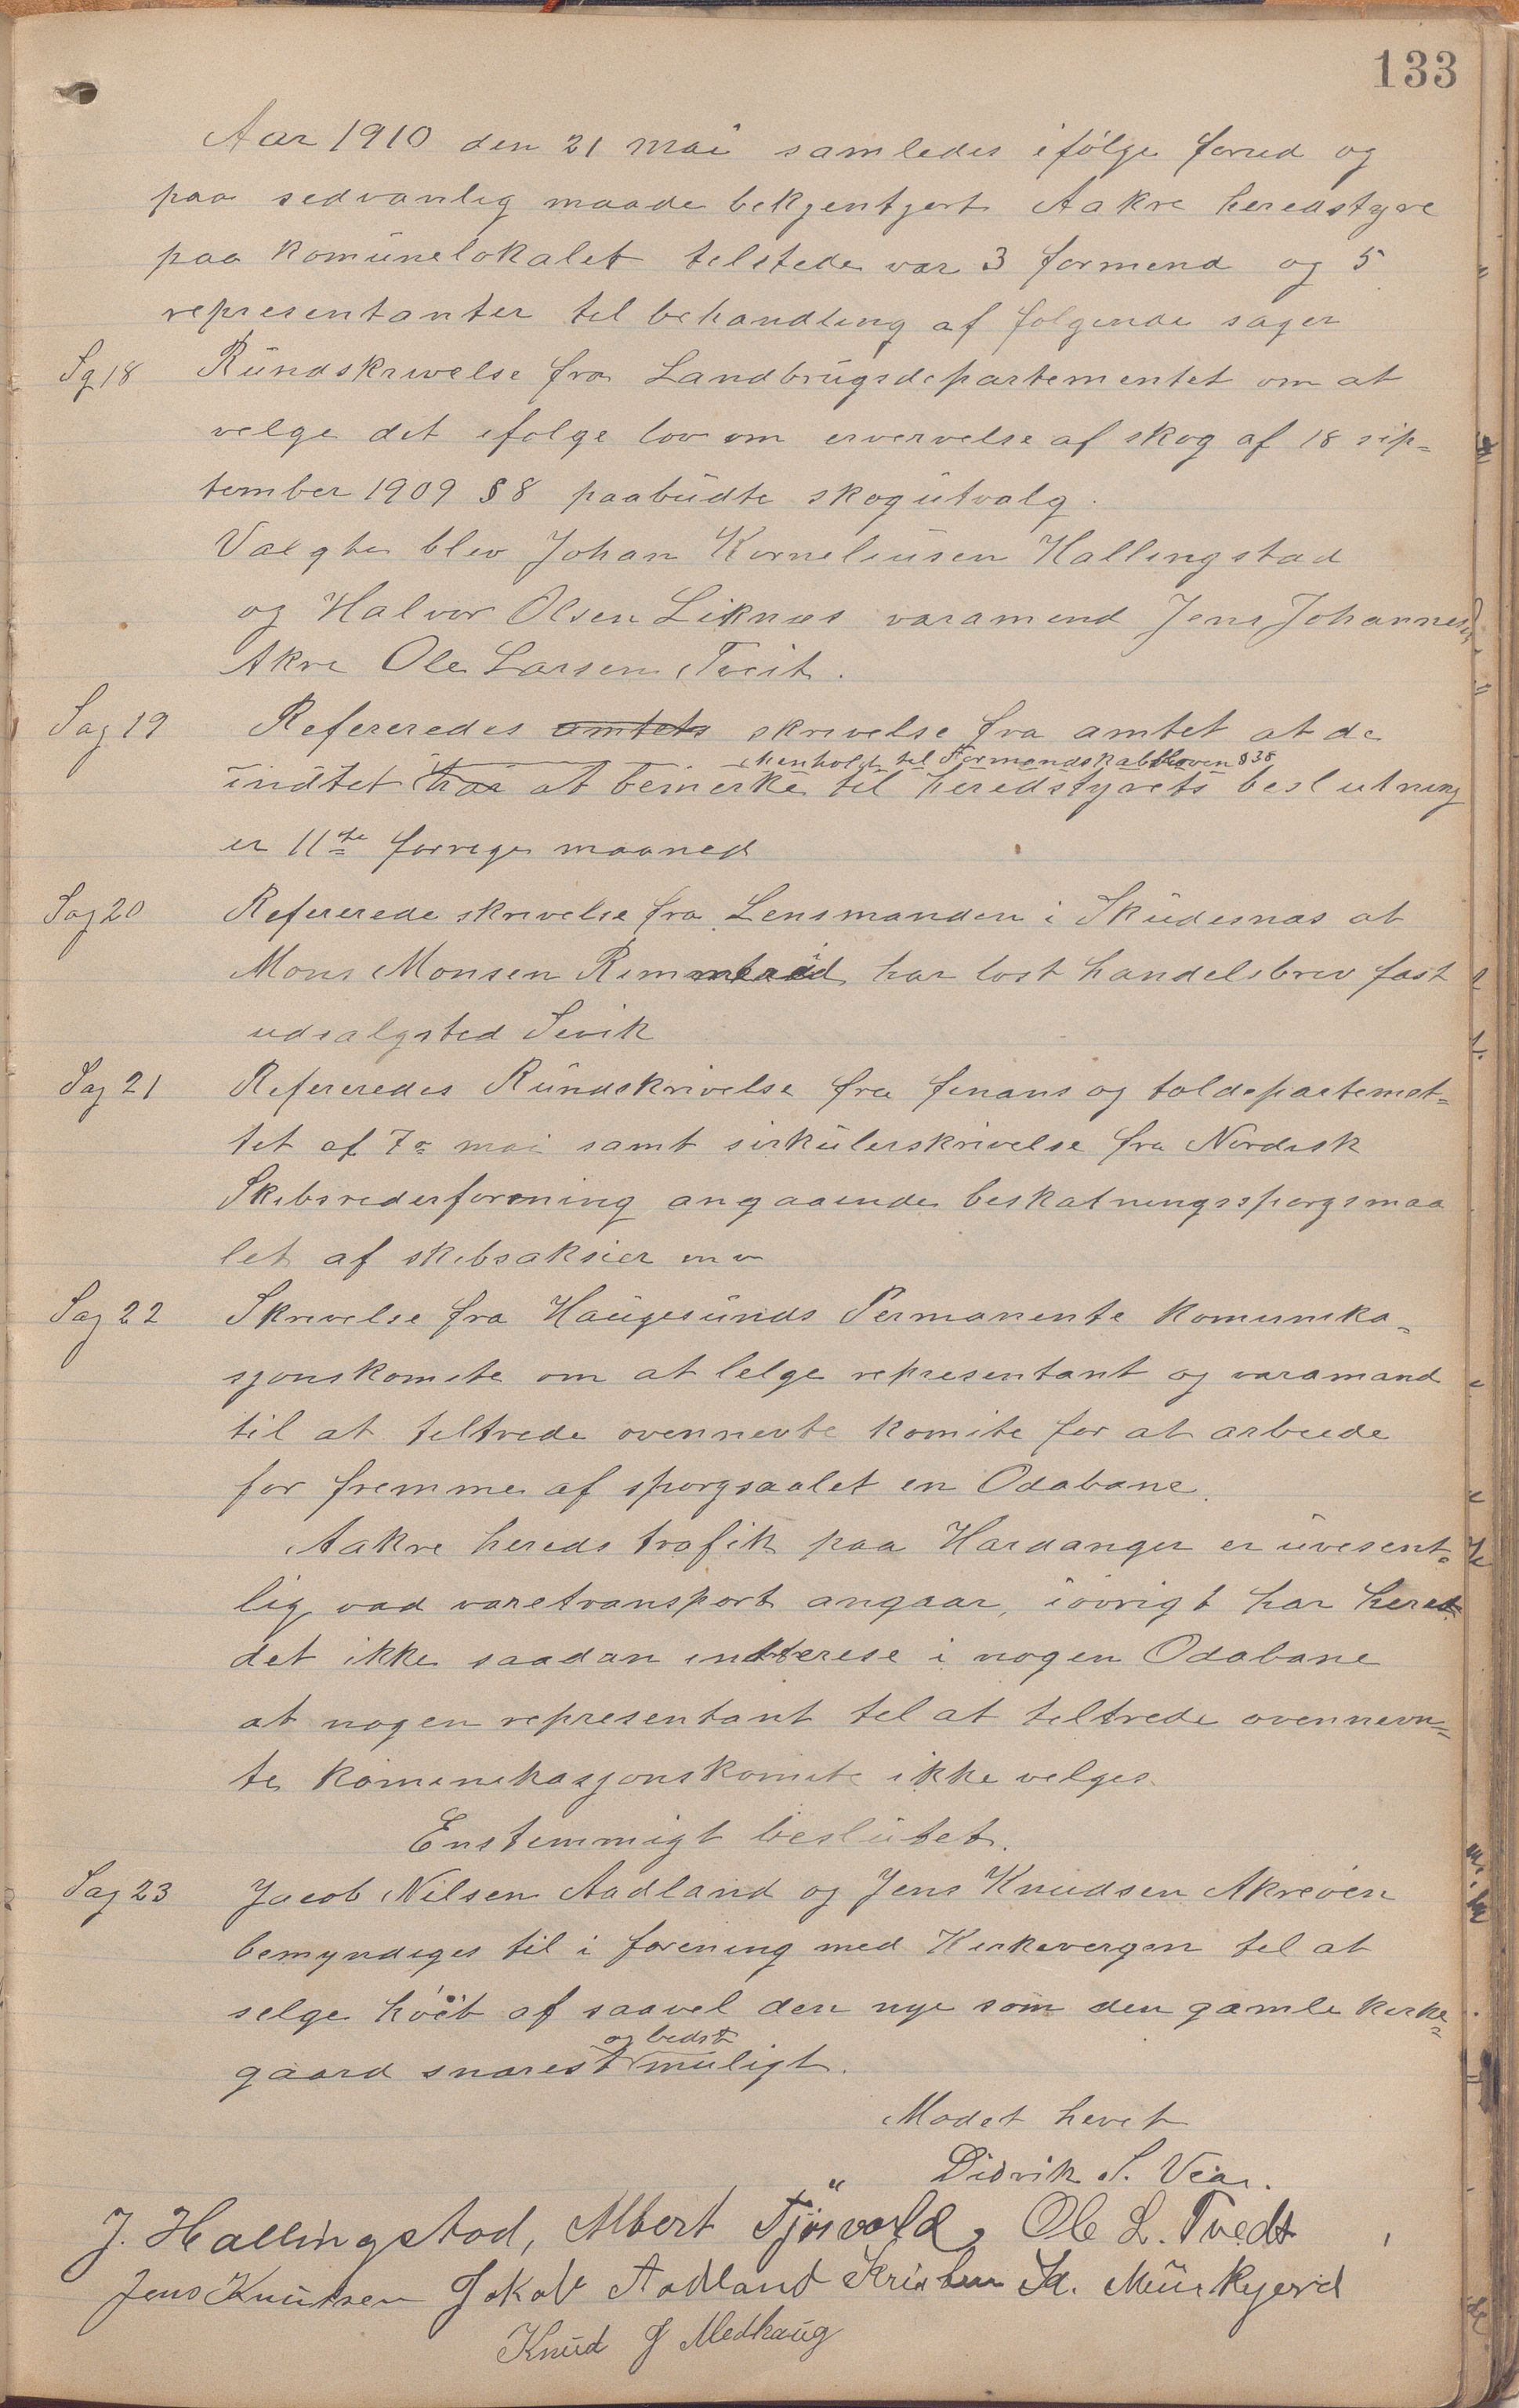 133
Aar 1910 den 21 mai samledes ifølge forud og
paa sedvanlig maade bekjentgjort Aakre heredstyre
paa komunelokalet telstede var 3 formend og 5
representanter til behandling af folgende sager
Sg 18 Rundskrivelse fra Landbrugsdepartementet om at
velge det efolge lov om ervervelse af skog af 18 sep=
tember 1909 § 8 paabudte skogutvalg.
Valgte blev Johan Korneliusen Hallingstad
og Halvor Olsen Liknes varamend Jens Johannes
Akre Ole Larsen Tveit.
Sag 19 Refereredes amtets skrivelse fra amtet at de
i henhold til Formandskabsloven § 38
indtet har at bemerke til heredstyrets beslutning
er 11te forrige maaned
Sag 20 Refererede skrivelse fra Lensmanden i Skudesnæs at
Mons Monsen har lost handelsbrev fast
udsalgsted Sevik
Sag 21 Refereredes Rundskrivelse fra finans og toldepartemet=
tet af 7de mai samt sirkulerskrivelse fra Nordisk
Skibsrederforening angaaende beskatningsspørgsmaa
let af skibsaksier m v
Sag 22 Skrivelse fra Haugesunds Permanente komunika=
sjonskomite om at lelge representant og varamand
til at teltrede ovennevte komite for at arbeide
for fremme af sporgsaalet en Odabane.
Aakre hereds trafik paa Hardanger er uvesent=
lig vad varetransport angaar, iøvrigt har hered
det ikke saadan intterese i nogen Odabane
at nogen representant tel at teltrede ovennevn=
te komunikasjonskomite ikke velges.
Enstemmigt beslutet.
Sag 23 Jacob Nilsen Aadland og Jens Knudsen Akreøen
bemyndiges til i forening med Kirkevergen tel at
selge høit af saavel den nye som den gamle kirke=
og bedst
gaard snarest muligt.
Modet hevet
Didrik S. Vear.
J. Hallingstad, Albert Tjøsvold, Ole L. Tvedt
Jens Knutsen Jakob Aadland Kristen Sd. Munkejord
Knud J Medhaug